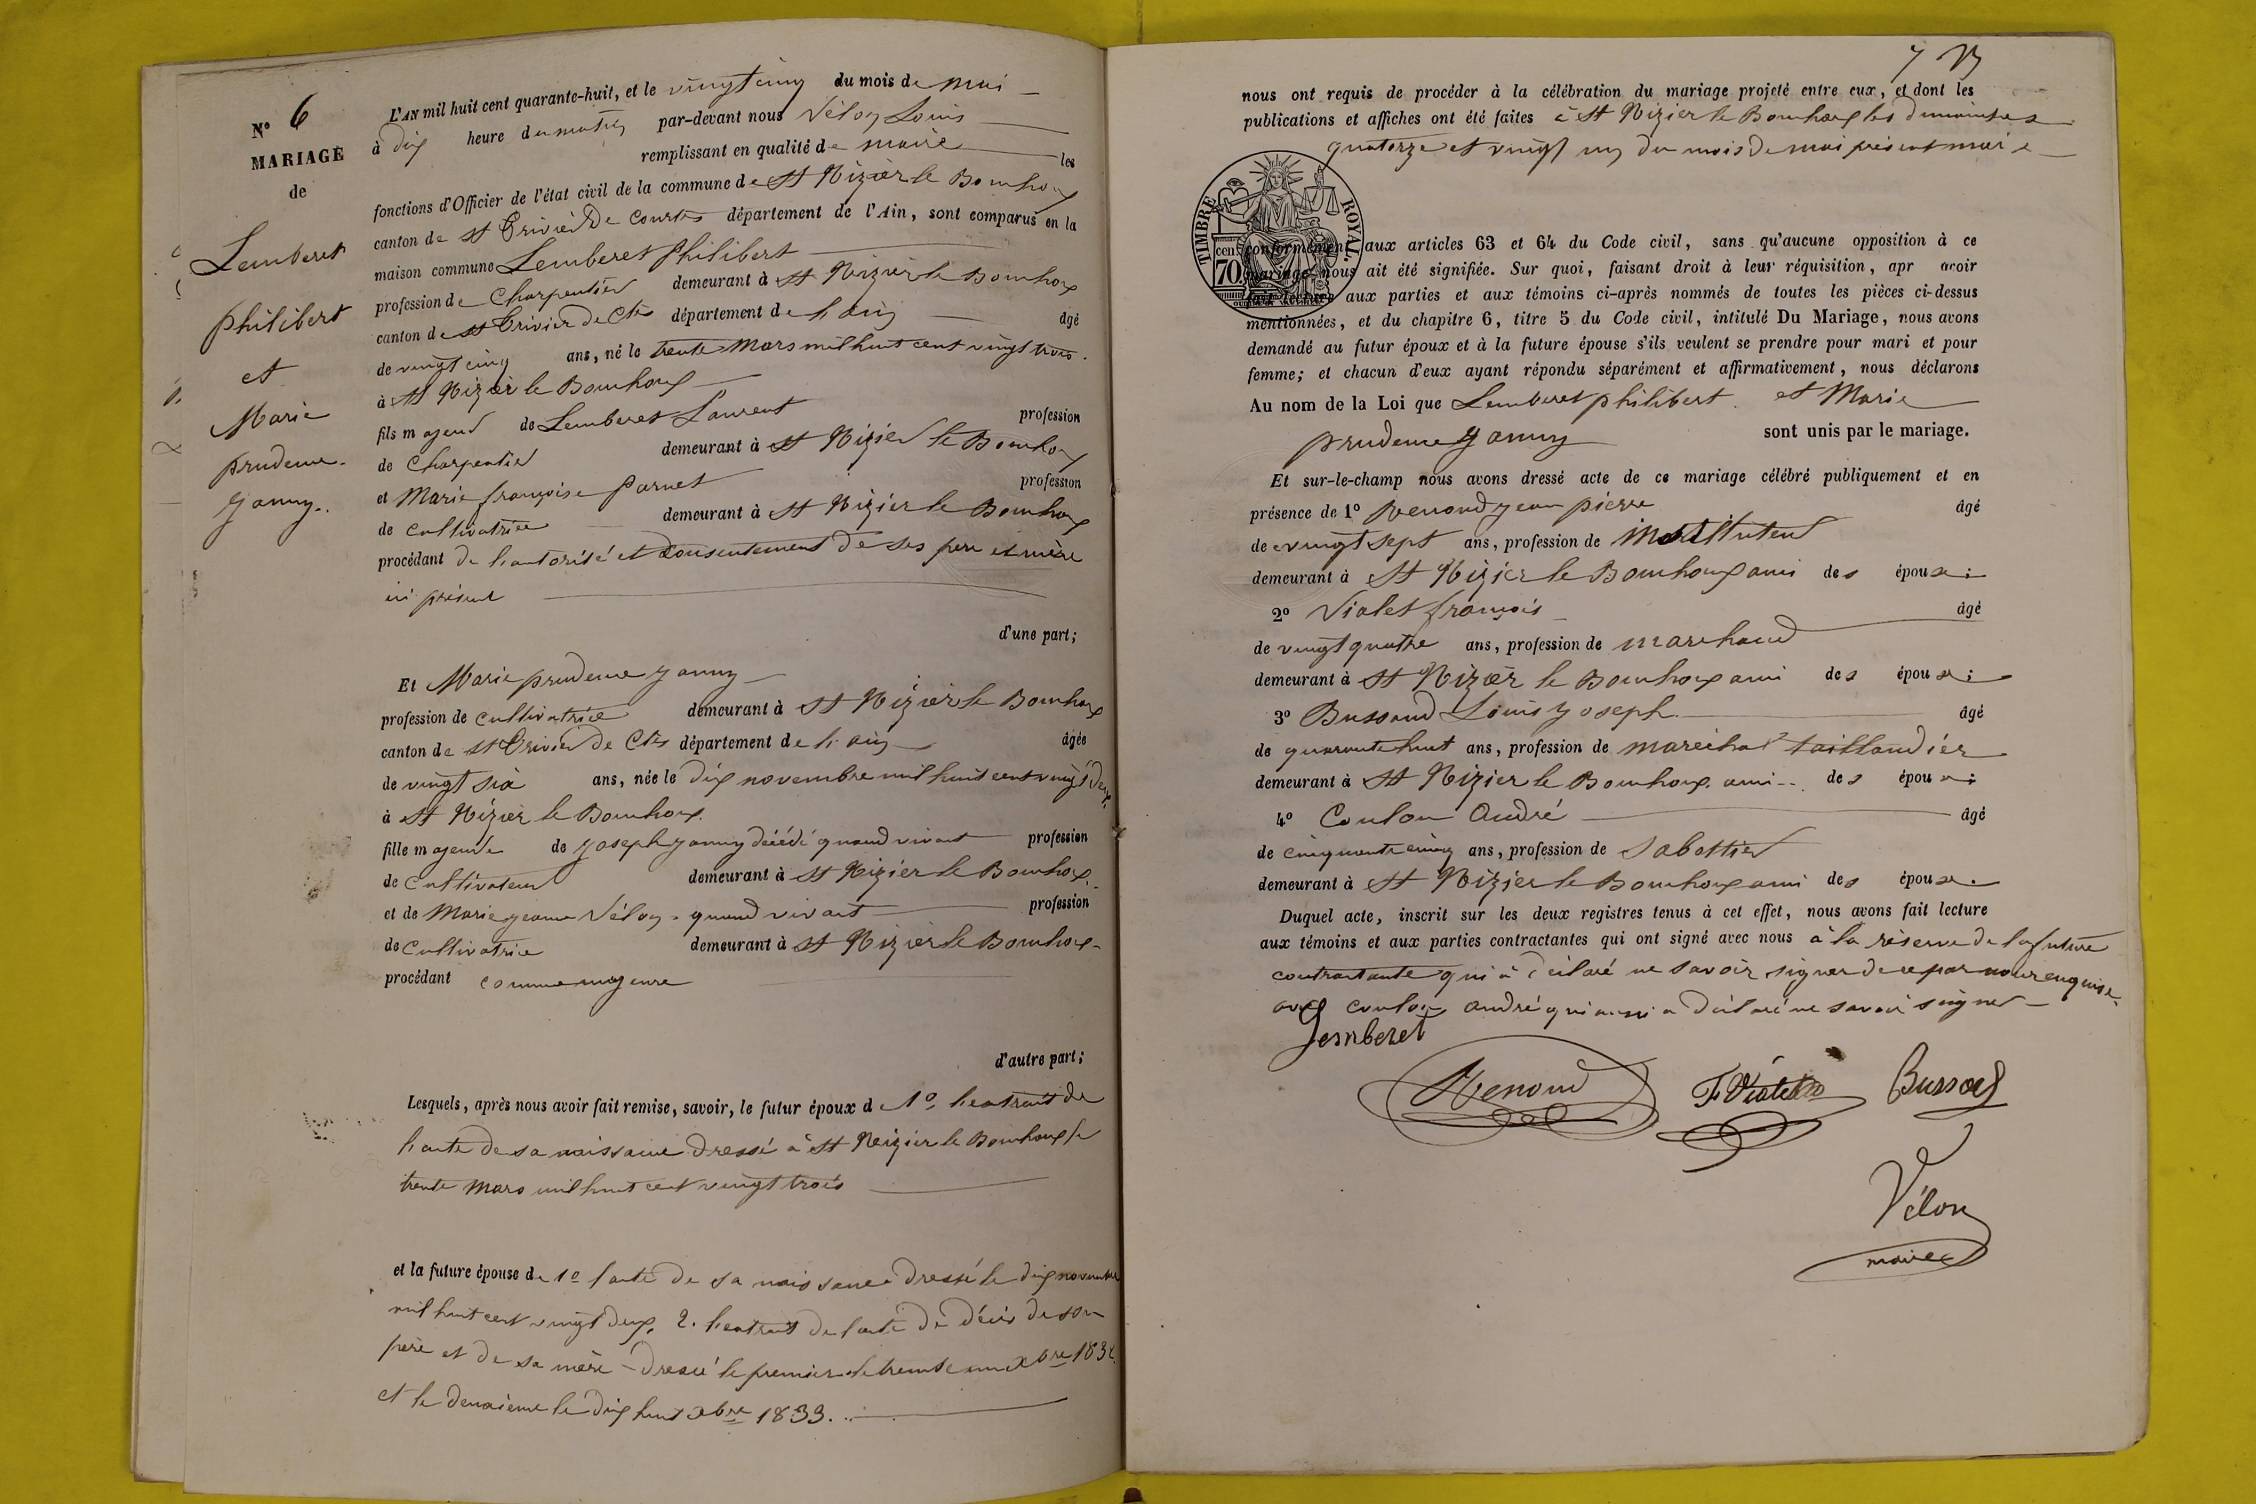 N° 6
MARIAGE
de
Lemberet
philibert
et
Marie
prudence
yanny.
L'AN mil huit cent quarante-huit, et le vingt cinq du mois de mai
à dix heure du matin par-devant nous Véloy Louis
remplissant en qualité de maire les
fonctions d'Officier de l'état civil de la commune de St Nizier le Bouchoux
canton de St Trivier de Courtes département de l'Ain, sont comparus en la
maison commune Lemberet philibert
profession de Charpentier demeurant à St Nizier le Bouchoux
canton de St Trivier de Ctes département de l'ain âgé
de vingt cinq ans, né le trente Mars mil huit cent vingt trois.
à St Nizier le Bouchoux
fils majeur de Lemberet Laurent profession
de Charpentier demeurant à St Nizier le Bouchoux
et Marie françoise parnet profession
de cultivatrice demeurant à St Nizier le Bouchoux
procédant de l'autorisé et consentement de ses pere et mère
ici présent
d'une part;
Et Marie prudence yanny
profession de cultivatrice demeurant à St Nizier le Bouchoux
canton de St Trivier de Ctes département de l'ain âgée
de vingt six ans, née le dix novembre mil huit cent vingt deux
à St Nizier le Bouchoux.
fille majeure de yoseph yanny décédé quand vivant profession
de cultivateur demeurant à St Nizier le Bouchoux
et de Marie yeanne Véloy. quand vivant profession
de Cultivatrice demeurant à St Nizier le Bouchoux
procédant comme majeure
d'autre part;
Lesquels, après nous avoir fait remise, savoir, le futur époux d e 1° l'extrait de
l'acte de sa naissance dressé à St Nizier le Bouchoux le
trente Mars mil huit cent vingt trois
et la future épouse de 1° l'acte de sa naissance dressé le dix novembre
mil huit cent vingt deux, 2. l'extrait de l'acte de décès de son
père et de sa mère dressé le premier le trente un xbre
et le deuxieme le dix huit xbre 1833.
7
nous ont requis de procéder à la célébration du mariage projeté entre eux, et dont les
publications et affiches ont été faites à St Nizier le Bouchoux les dimanches
quatorze et vingt un du mois de mai présent mois
TIMBRE ROYAL.
70. cen
conformément aux articles 63 et 64 du Code civil, sans qu'aucune opposition à ce
mariage nous ait été signifiée. Sur quoi, faisant droit à leur réquisition, apr avoir
fait lecture aux parties et aux témoins ci-après nommés de toutes les pièces ci-dessus
mentionnées, et du chapitre 6, titre 5 du Code civil, intitulé Du Mariage, nous avons
demandé au futur époux et à la future épouse s'ils veulent se prendre pour mari et pour
femme; et chacun d'eux ayant répondu séparément et affirmativement, nous déclarons
Au nom de la Loi que Lemberet philibert et Marie
prudence yanny sont unis par le mariage.
Et sur-le-champ nous avons dressé acte de ce mariage célébré publiquement et en
présence de 1° Renoud yean pierre âgé
de vingt sept ans, profession de instituteur
demeurant à St Nizier le Bouchoux ami des époux;
2° Violet françois âgé
de vingt quatre ans, profession de marchand
demeurant à St Nizier le Bouchoux ami des époux;
3° Bussoud Louis yoseph âgé
de quarante huit ans, profession de marechal taillandier
demeurant à St Nizier le Bouchoux ami des époux;
4° Coulon André âgé
de cinquante cinq ans, profession de sabottier
demeurant à St Nizier le Bouchoux ami des époux.
Duquel acte, inscrit sur les deux registres tenus à cet effet, nous avons fait lecture
aux témoins et aux parties contractantes qui ont signé avec nous à la réserve de la future
contractante qui à déclaré ne savoir signer de ce par nous enquise.
avec coulon andré qui aussi a déclaré ne savoir signer
Lemberet
Renoud
F. Violet
Bussoud
Véloy
maire